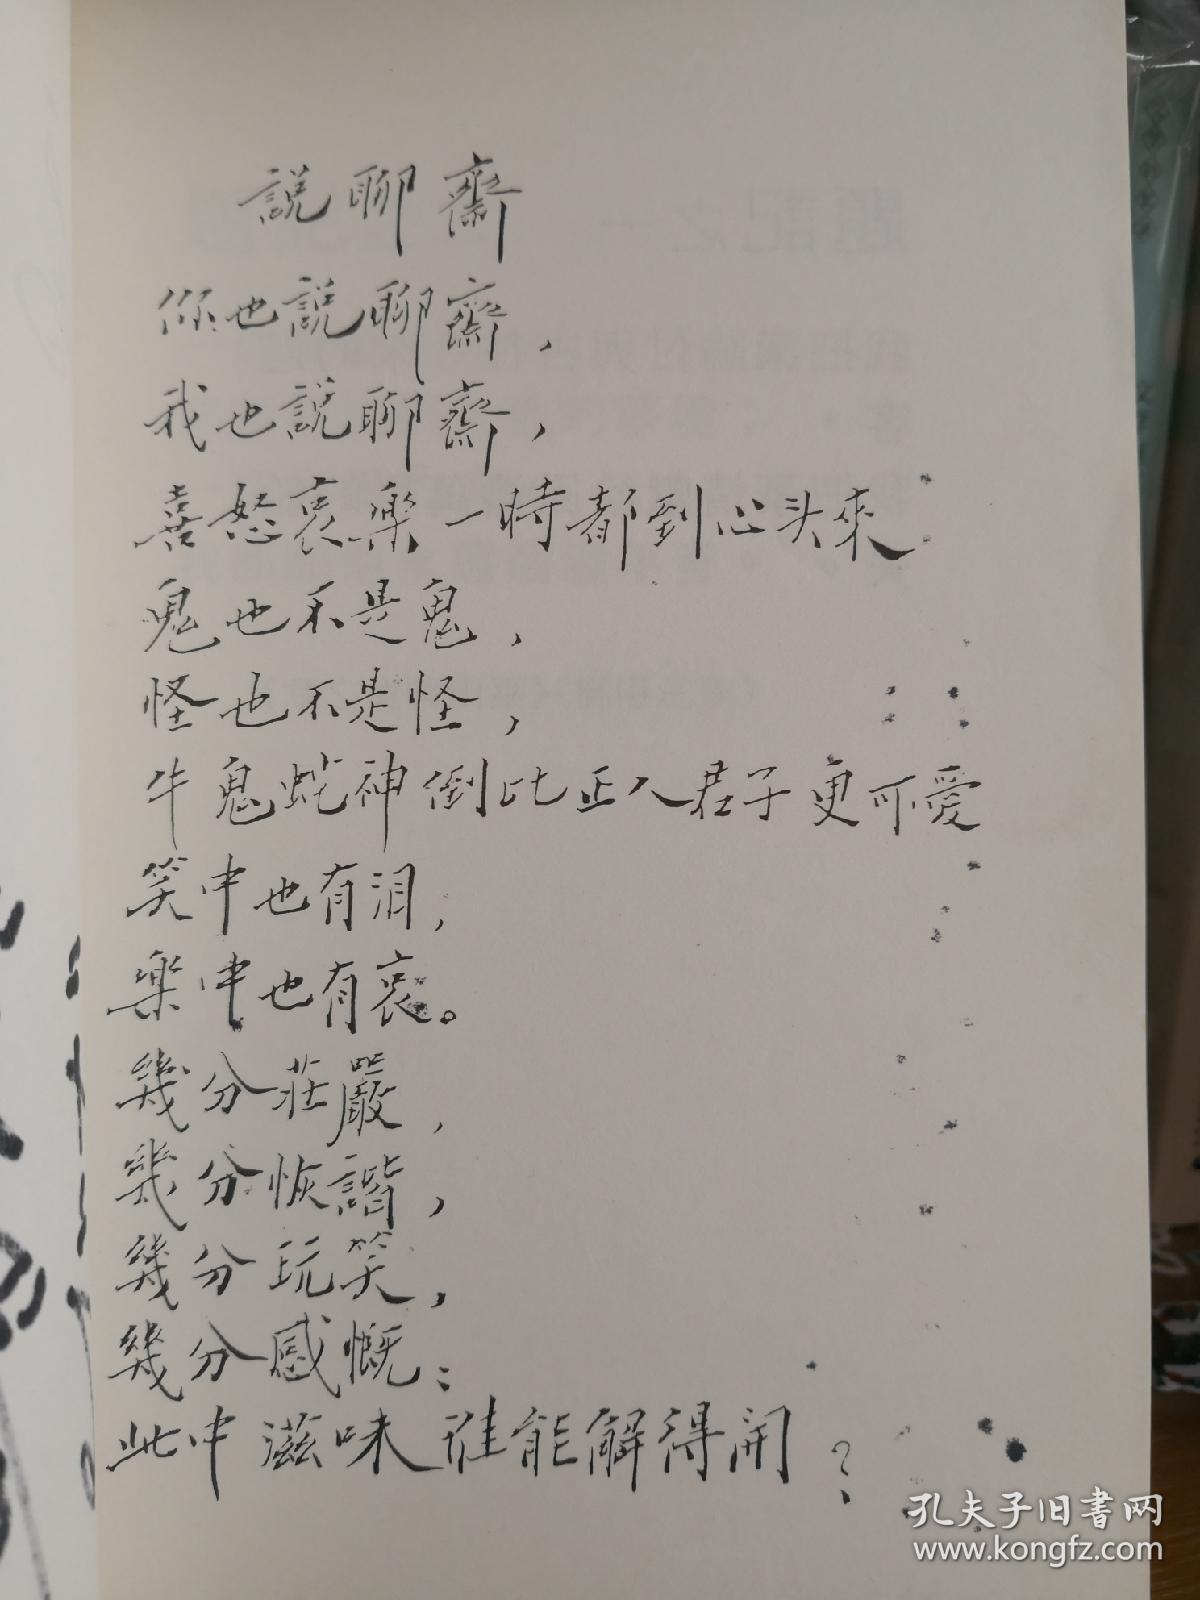 說聊齋
你也說聊齋，
我也說聊齋，
喜怒哀樂一時都到心头來．
鬼也不是鬼，
怪也不是怪，
牛鬼蛇神倒比正人君子更可爱
笑中也有泪，
樂中也有哀。
幾分莊嚴，
幾分恢諧，
幾分玩笑，
幾分感慨；
此中滋味誰能解得開？
孔夫子旧书网
www.kongfz.com
題記之一